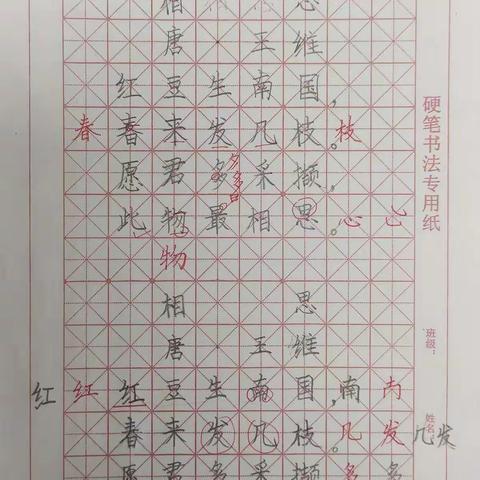 相 思
唐 · 王 维
红 豆 生 南 国，
春 春 来 发 几 枝。枝
愿 君 多 采 撷，
此 物 最 相 思。心
物
相 思
唐 · 王 维
红 红 红 豆 生 南 国，南
春 来 发 几 枝。几 发 几发
愿 君 多 采 撷 多 多
硬笔书法专用纸
班级：
姓名